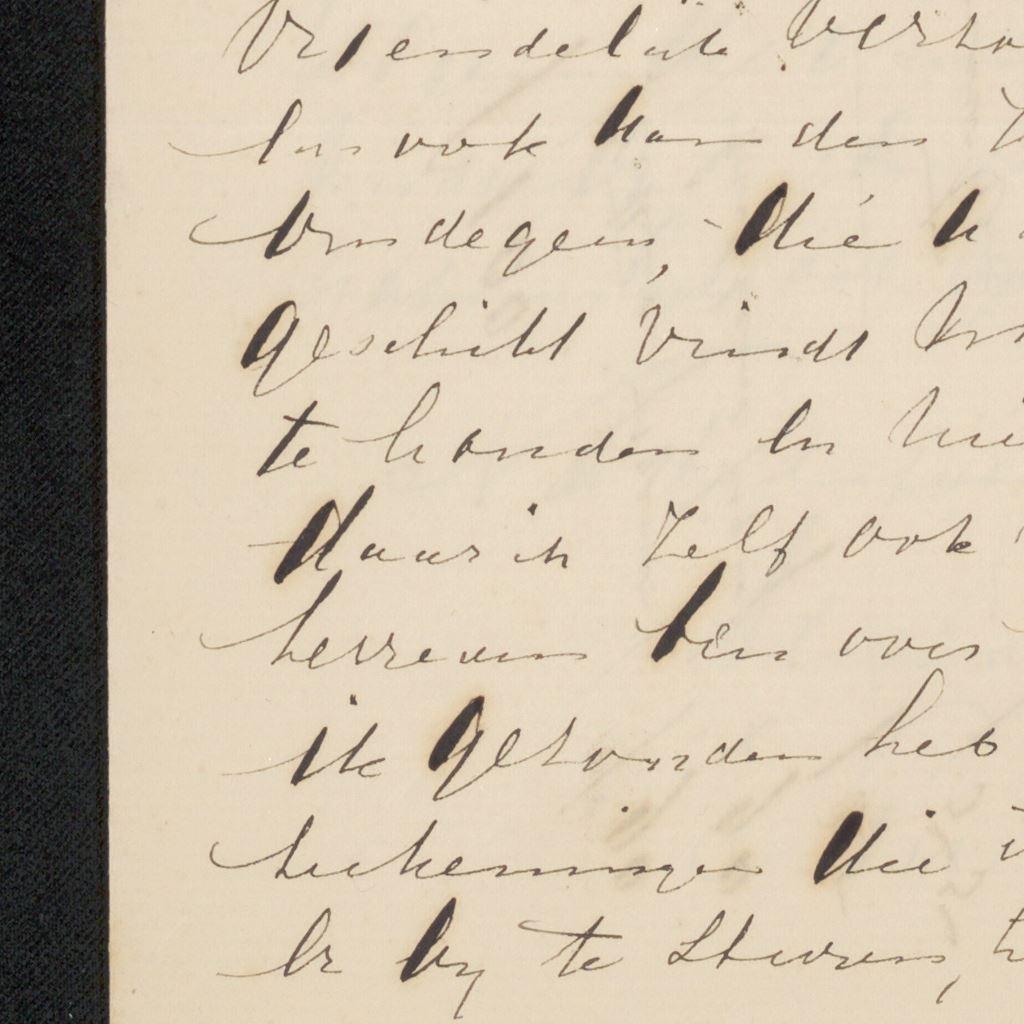 Vriendelijk verzo
en ook van den
van degeen, die u
geschikt vindt
te houden en
daarin zelf ook
tevreden ben over
ik gezonden heb
teekeningen die
er bij te sturen,